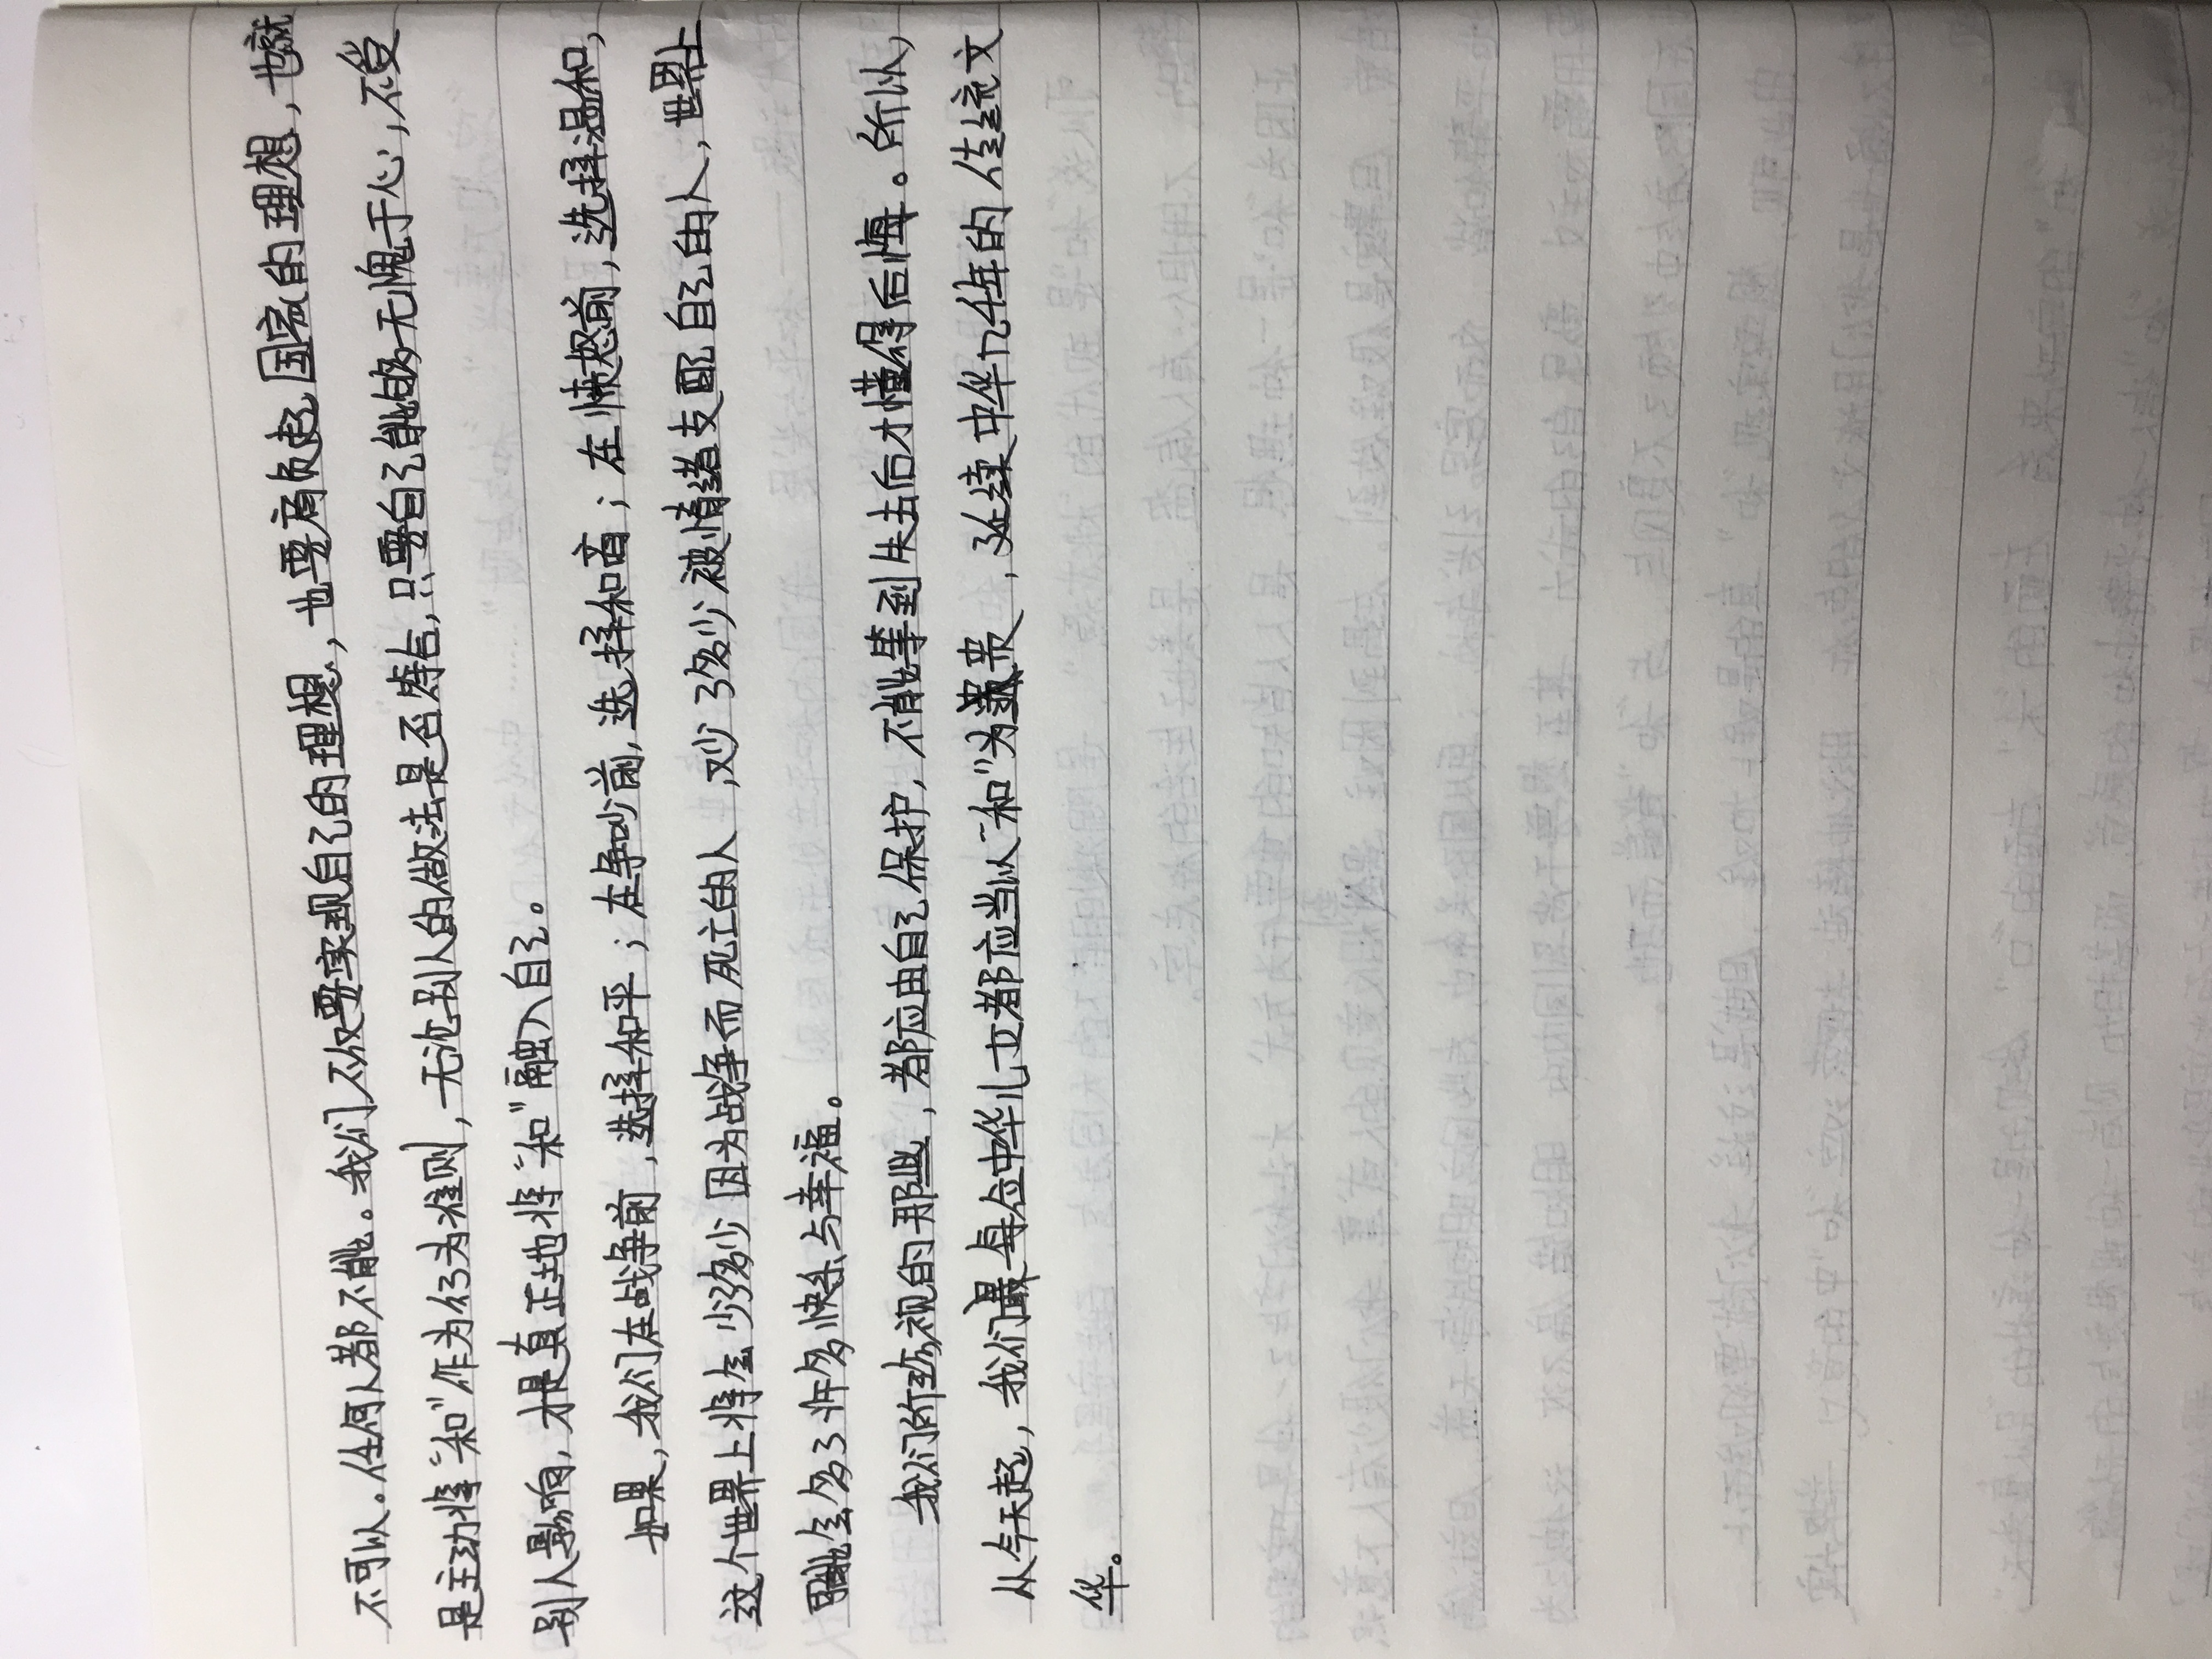 不可以。任何人都不能。我们不仅要实现自己的理想，也要肩负起国家的理想，也就
是主动将“和”作为行为准则，无论别人的做法是否符合，只要自己能够无愧于心，不受
别人影响，才是真正地将“和”融入自己。
如果，我们在战争前，选择和平；在争吵前，选择和商；在愤怒前，选择温和，
这个世界上将会少多少因为战争而死亡的人，又少了多少被情绪支配自己的人，世界上
又能会多了许多快乐与幸福。
我们所珍视的那些，都应由自己保护，不能等到失去后才懂得后悔。所以，
从今天起，我们最每位中华儿女都应当以“和”为贵，延续中华几千年的传统文
华。